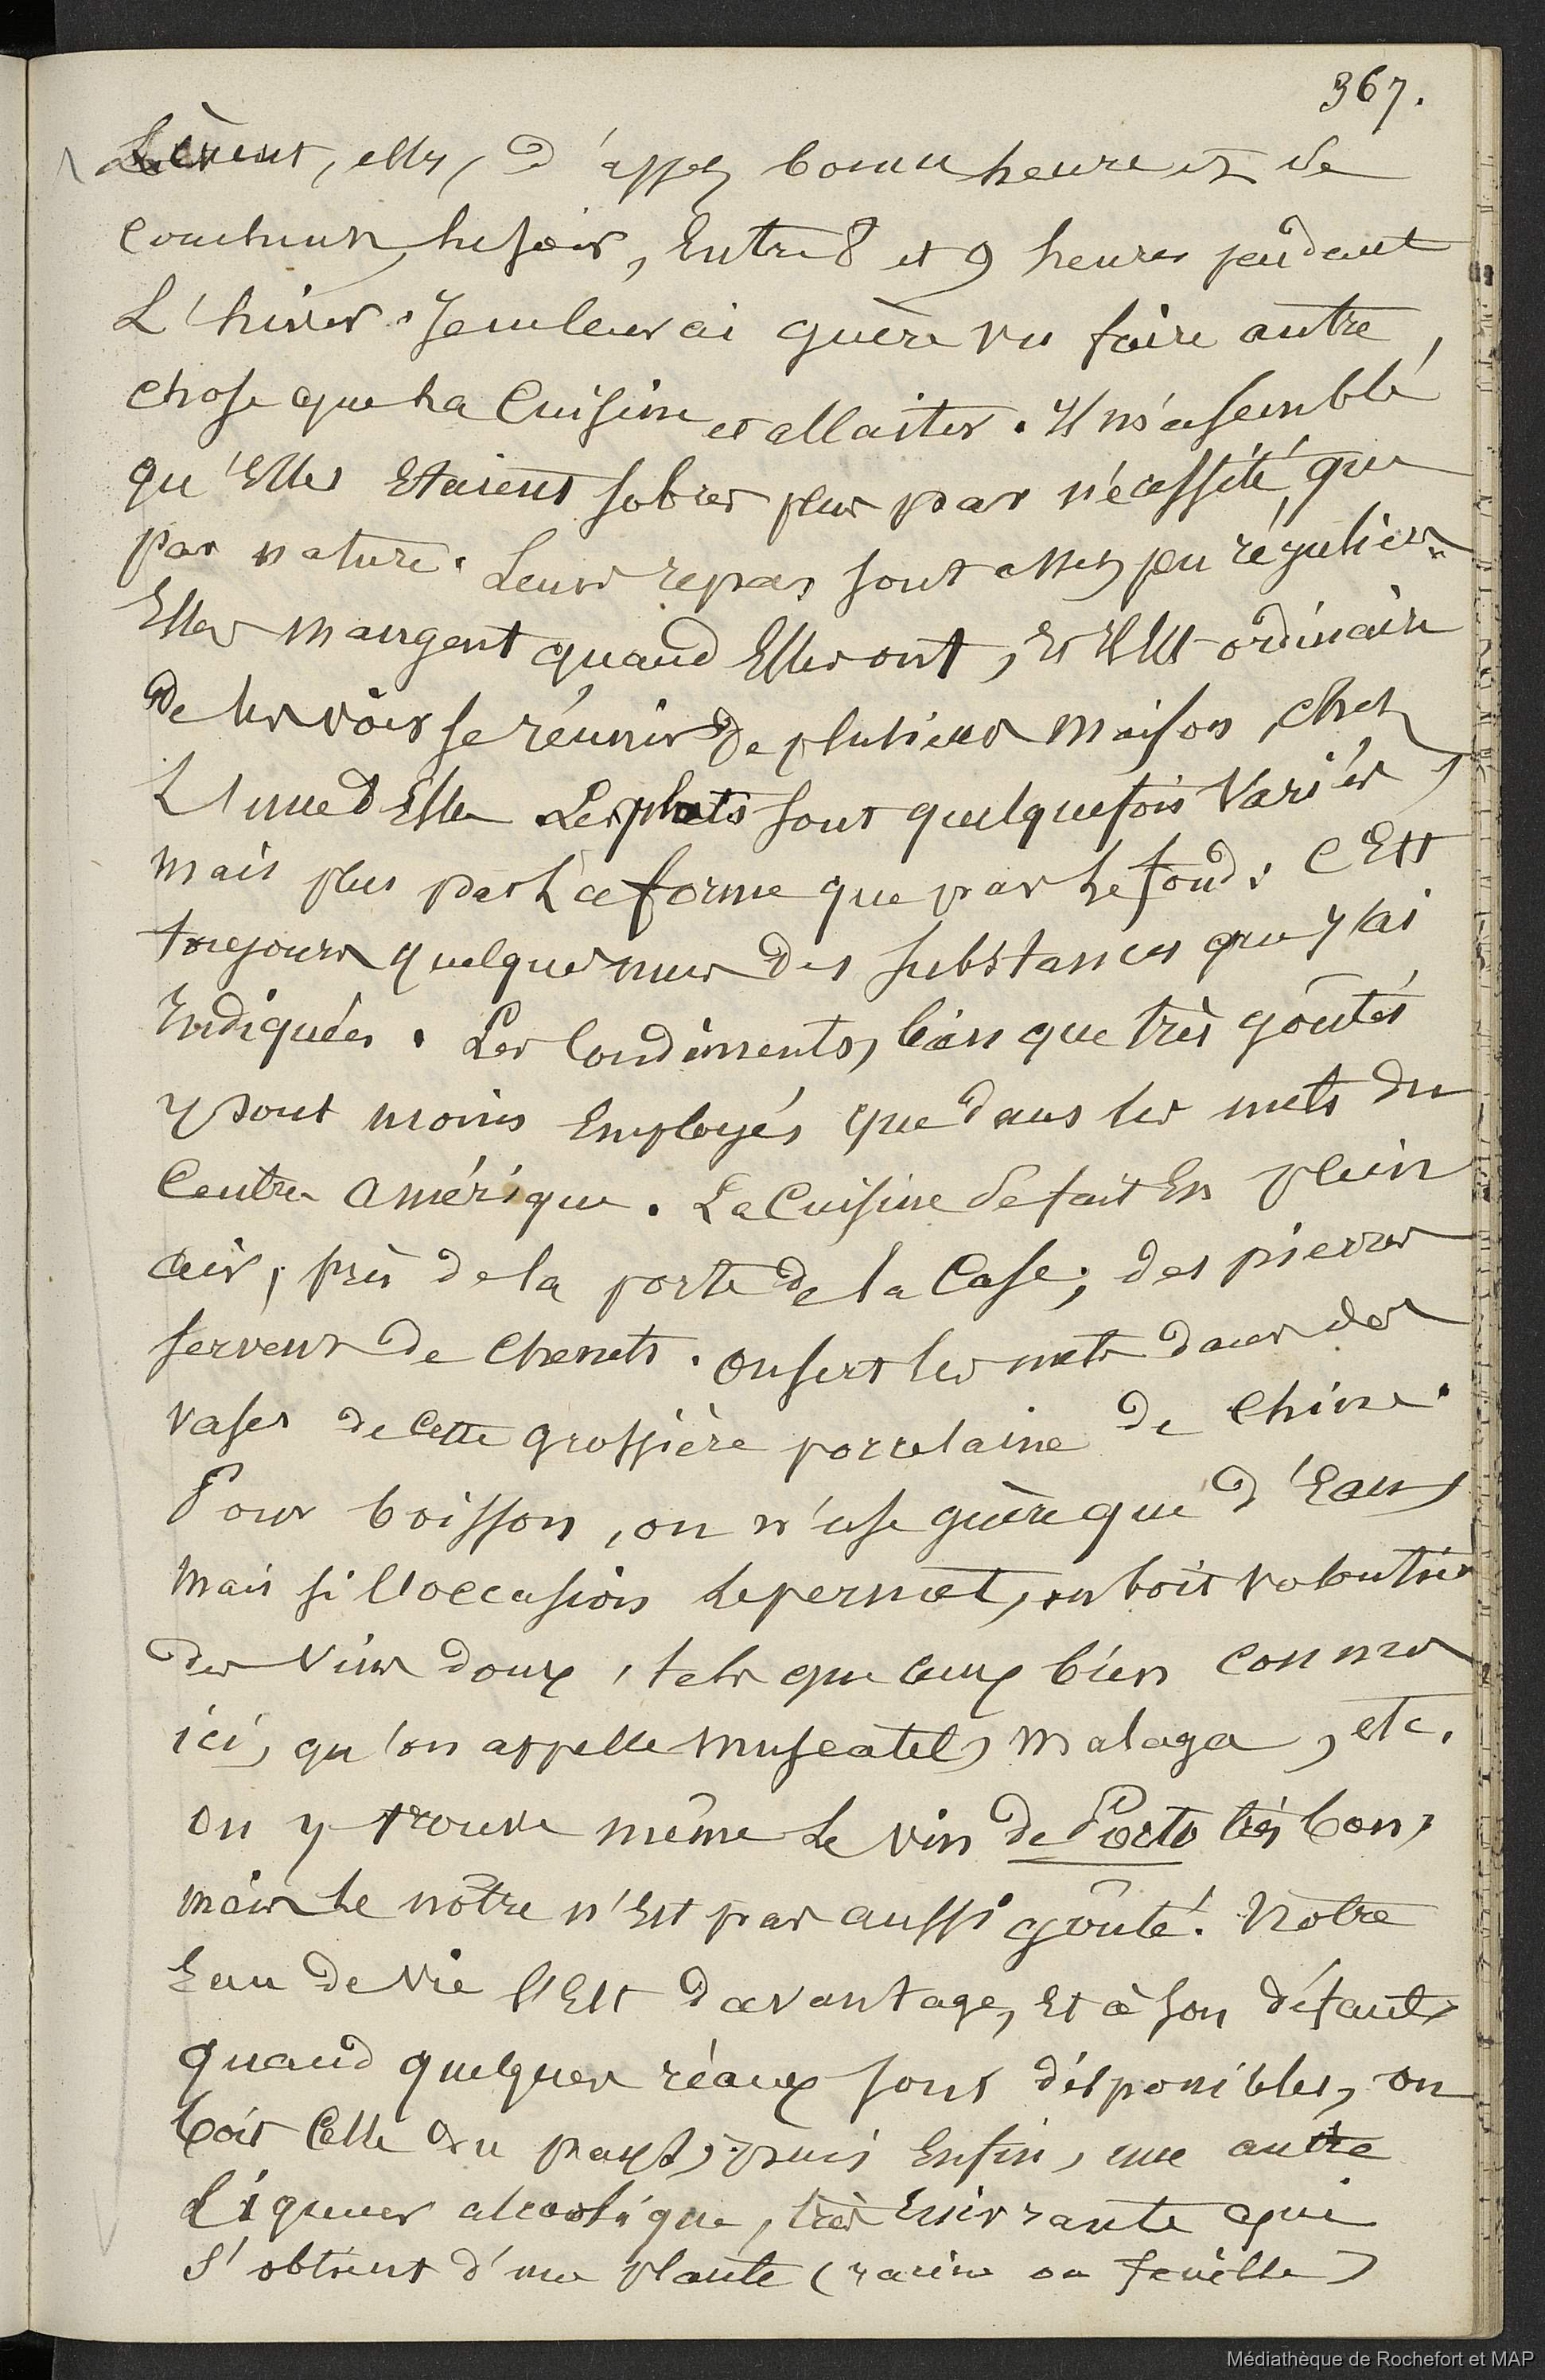 367.
Lèvent, elles, d'assez bonne heure et se
couchent, le soir, Entre 8 et 9 heures pendant
L'hiver. Je ne leur ai guère vu faire autre
chose que La Cuisine et allaiter. Il m'a semblé
qu'Elles Etaient sobres plus par nécessité, que
par nature. Leurs repas sont assez peu réguliers.
Elles mangent quand Elles ont, Et il Est ordinaire
de les voir se réunir de plusieurs maisons, chez
L'une d'Elles. Les plats sont quelquefois Variés,
mais plus par La forme que par le fond. C'Est
toujours quelques unes des substances que j'ai
Indiquées. Les Condiments, bien que très goûtés
y sont moins Employés que dans les mets du
Centre Amérique. La Cuisine se fait En plein
air, près de la porte de la Case; des pierres
servent de chenets. on sert les mets dans des
vases de cette grossière porcelaine de Chine.
Pour boisson, on n'use guère que d'Eau,
mais si l'occasion le permet, on boit volontiers
des Vins doux, tels que ceux bien connus
ici, qu'on appelle muscatel, malaga, etc.
on y trouve même le vin de Porto très bon,
mais le nôtre n'Est pas aussi goûté. Notre
Eau de vie l'Est davantage, Et à son défaut,
quand quelques réaux sont disponibles, on
boit Celle du pays, puis Enfin, une autre
Liqueur alcoolique, très Enivrante qui
s'obtient d'une plante (racine ou feuille)
Médiathèque de Rochefort et MAP